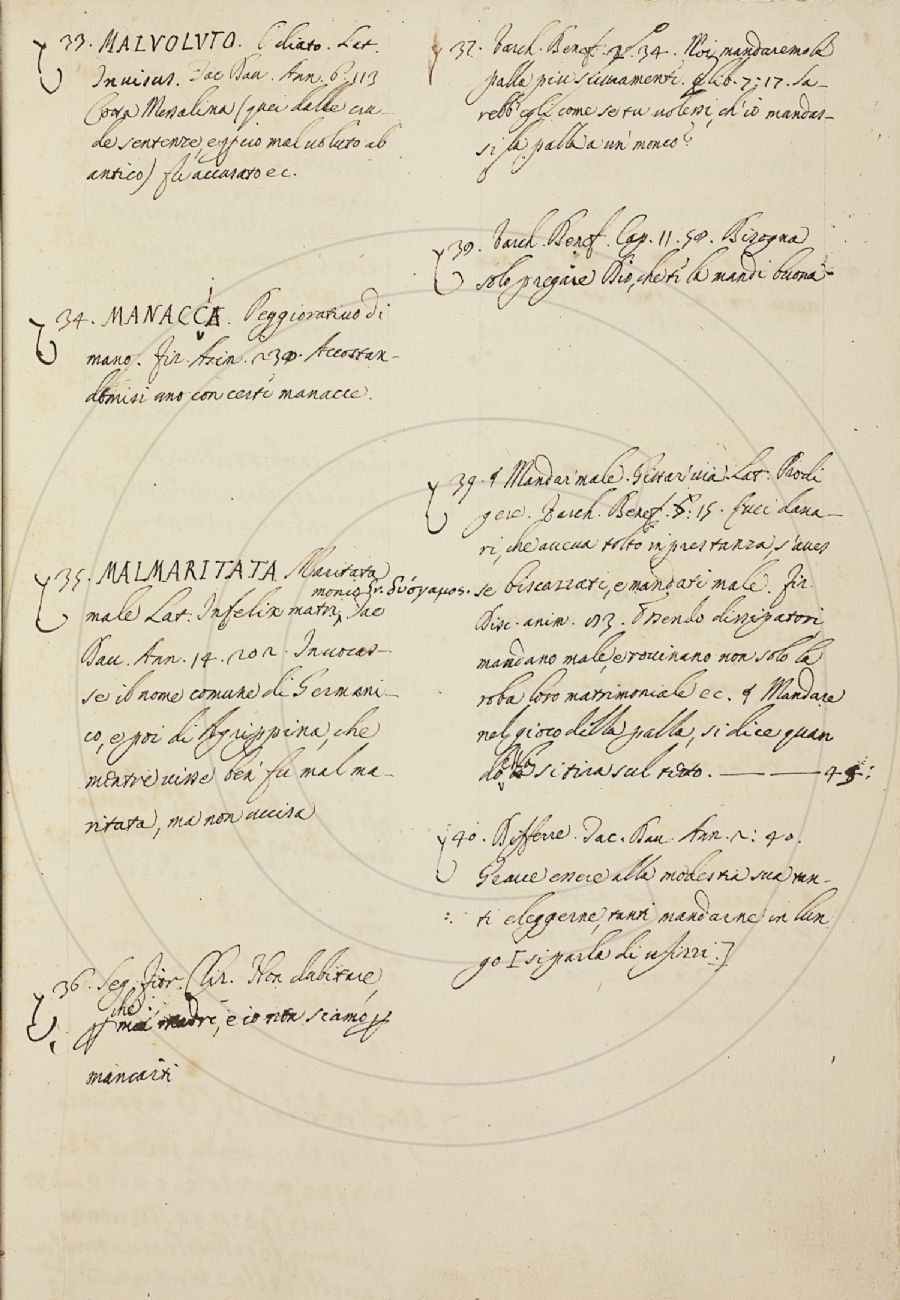 33. MALVOLUTO. Odiato. Lat.
Invisus. Tac. Dav. Ann. 6. 113
Cotta Messalina (que' dalle cru-
de sentenze, e perciò mal voluto ab
antico) fu accusato ec.
34. MANACCIA. Peggiorativo di
mano. Fir. Asin. 230. Accostan-
domisi uno con certe manacce.
35. MALMARITATA. Maritata
male Lat. Infelix matrimonio Gr. δύσγαμος. Tac.
Dav. Ann. 14. 202. Invocas-
se il nome comune di Germani-
co, e poi di Agrippina, che
mentre visse ben fu mal ma-
ritata, ma non uccisa
36. Seg. Fior. Cliz. Non dubitare,
che madre, e io non siamo
mancati
37. Varch. Benef. 2. 34. Noi mandaremo la
palla più sicuramente. E lib. 7: 17. Sa-
rebb'egli come se tu volessi, ch'io mandas-
si la palla a un monco?
38. Varch. Benef. Cap. 11. 58. Bisogna
solo pregare Dio, che ti la mandi buona-
39. ¶ Mandar male. Gittar via. Lat. Prodi
gere. Varch. Benef. 15. Cuci dana-
ri, che aveva tolto in prestanza, s'aves
se biscazzati, e mandati male. Fir.
Disc. anim. Essendo dissipatori,
mandano male, e rovinano non solo la
roba loro matrimoniale ec. ¶ Mandare
nel gioco della palla, si dice quan
do si tira sul tetto. — — — 4
40. Differre. Tac. Dav. Ann. 2: 40.
Grave essere alla modestia sua tan-
ti eleggerne, tanti mandarne in lun
go [si parla di ufizzi.]